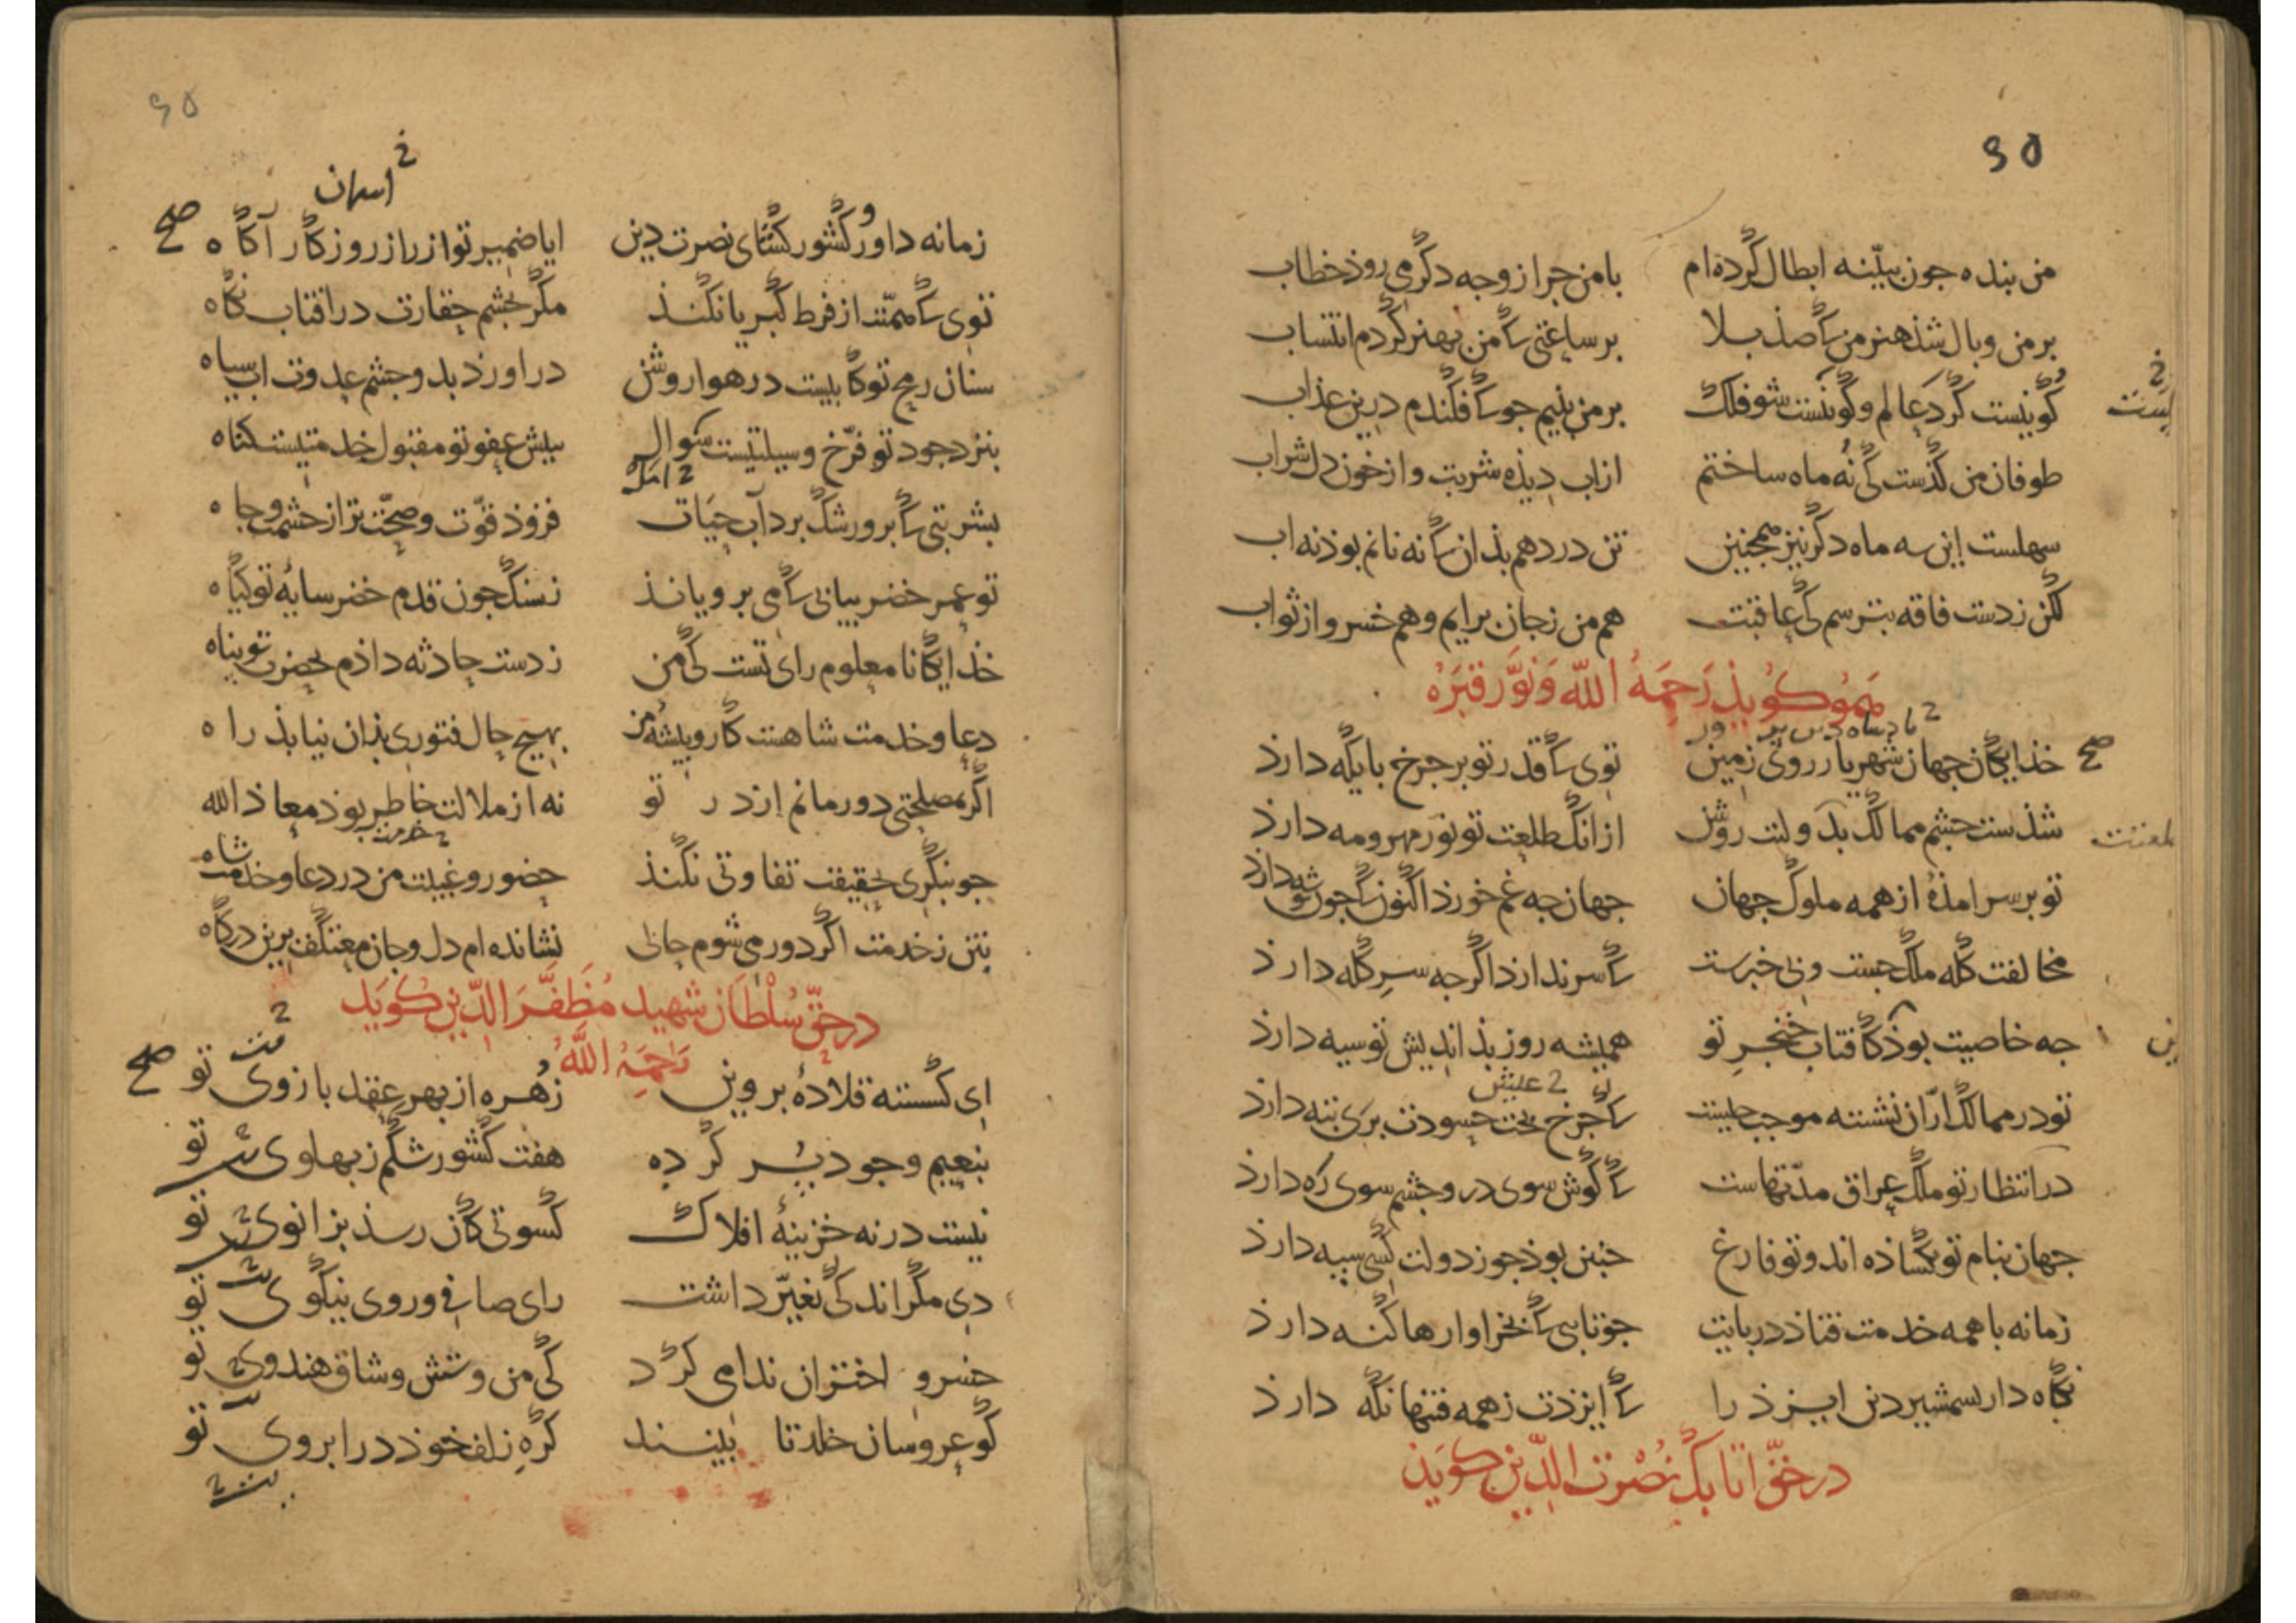 ۹۵
من بنده جون بیّنه ابطال کرده‌ام بامن جرا زوجه دکر می روذ خطاب
بر من وبال شذ هنر من که صذ بلا بر ساعتی که من بهنر کردم انتساب
کونیست کرد عالم و کونیست شو فلک بر من بنیم جو که فکندم درین عذاب
طوفان من کذشت کی نُه ماه ساختم از اب دیذه شربت و از خون دل شراب
سهلست این سه ماه دکر نیز همجنین تن دردهم بذان که نه نانم بوذ نه اب
لکن زدست فاقه بترسم کی عاقبت هم من زجان برایم و هم خسرو از ثواب
هموکویذ رَحِمَهُ الله وَنَوَّرَ قبَرَهُ
خذایکان جهان شهریار روی زمین توی که قدر تو بر جرخ بایکه دارذ
صح
شذست جشم ممالک بدولتت روشن ازانک طلعت تو نور مهر و مه دارذ
تو بر سر امذهٔ از همه ملوک جهان جهان جه غم خورذ اکنون که جون تو شه دارذ
مخالفت کله ملک جست وبی خبرست که سر ندارذ اکرجه سرِ کله دارذ
جه خاصیت بوذ کافتاب خنجرِ تو همیشه روز بذاندیش تو سیه دارذ
۲ عیش
تو در ممالک ارّان نشسته موجب جیست که جرخ بخت حسودت برین تبه دارذ
در انتظار تو ملک عراق مدّتهاست که کوش سوی در و جشم سوی ره دارذ
جهان بنام تو بکشاذه اند و تو فارغ جنین بوذ جو ز دولت کسی سپه دارذ
زمانه با همه خدمت فتاذ در بایت جو ناسی که بخروارها کنه دارذ
نکاه دار بشمشیر دین ایزذ را که ایزدت زهمه فتنها نکه دارذ
در حقّ اتابک نُصْرت الدّین کوید
۹۵
خ
اسمان
زمانه داور و کشور کشای نصرت دین ایا ضمیر تو از راز روزکار آکاه
صح
توی که همّتت از فرط کبریا نکند مکر بجشم حقارت در افتاب نکاه
سنان رمح تو کابیست در هوا روشن دراورذ بدو جشم عدوت اب سیاه
بنزد جود تو فرّخ وسیلتیست سوال ببیش عفو تو مقبول خدمتیست کناه
۲ امل
بشربتی که برو رشک برد آب حیات فزوذ قوّت و صحّت ترا ز حشمت و جاه
تو عمر خضر بیابی که می برویانذ ز سنک جون قدم خضر سایهٔ تو کیاه
خذایکانا معلوم رای تست کی من ز دست حادثه داذم بحضرت تو بناه
دعا و خدمت شاهست کار و بیشهٔ من بهیج حال فتوری بذان نیابذ راه
اکر بمصلحتی دور مانم از در تو نه از ملالت خاطر بوذ معاذ الله
۲ خدمت
جو بنکری بحقیقت تفاوتی نکنذ حضور و غیبت من در دعا و خدمت شاه
بتن زخدمت اکر دور می شوم حالی نشانده ام دل و جان معتکف برین درکاه
در حقّ سُلْطان شهید مُظَفَّرَ الدّین کوَیَد
رَحِمَهُ اللهُ
ای کسسته قلادهٔ بروین زُهره از بهر عقد بازوی تو
صح
بنعیم وجود بُر کرده هفت کشور شکم ز بهلوی تو
نیست در نه خزینهٔ افلاک کسوتی کان رسذ بزانوی تو
دی مکر اندکی تغیّر داشت رای صافی و روی نیکوی تو
خسرو اختران ندا می کرد کی من و شش وشاق هندوی تو
کو عروسان خلد تا ببینند کرهِ زلف خوذ در ابروی تو